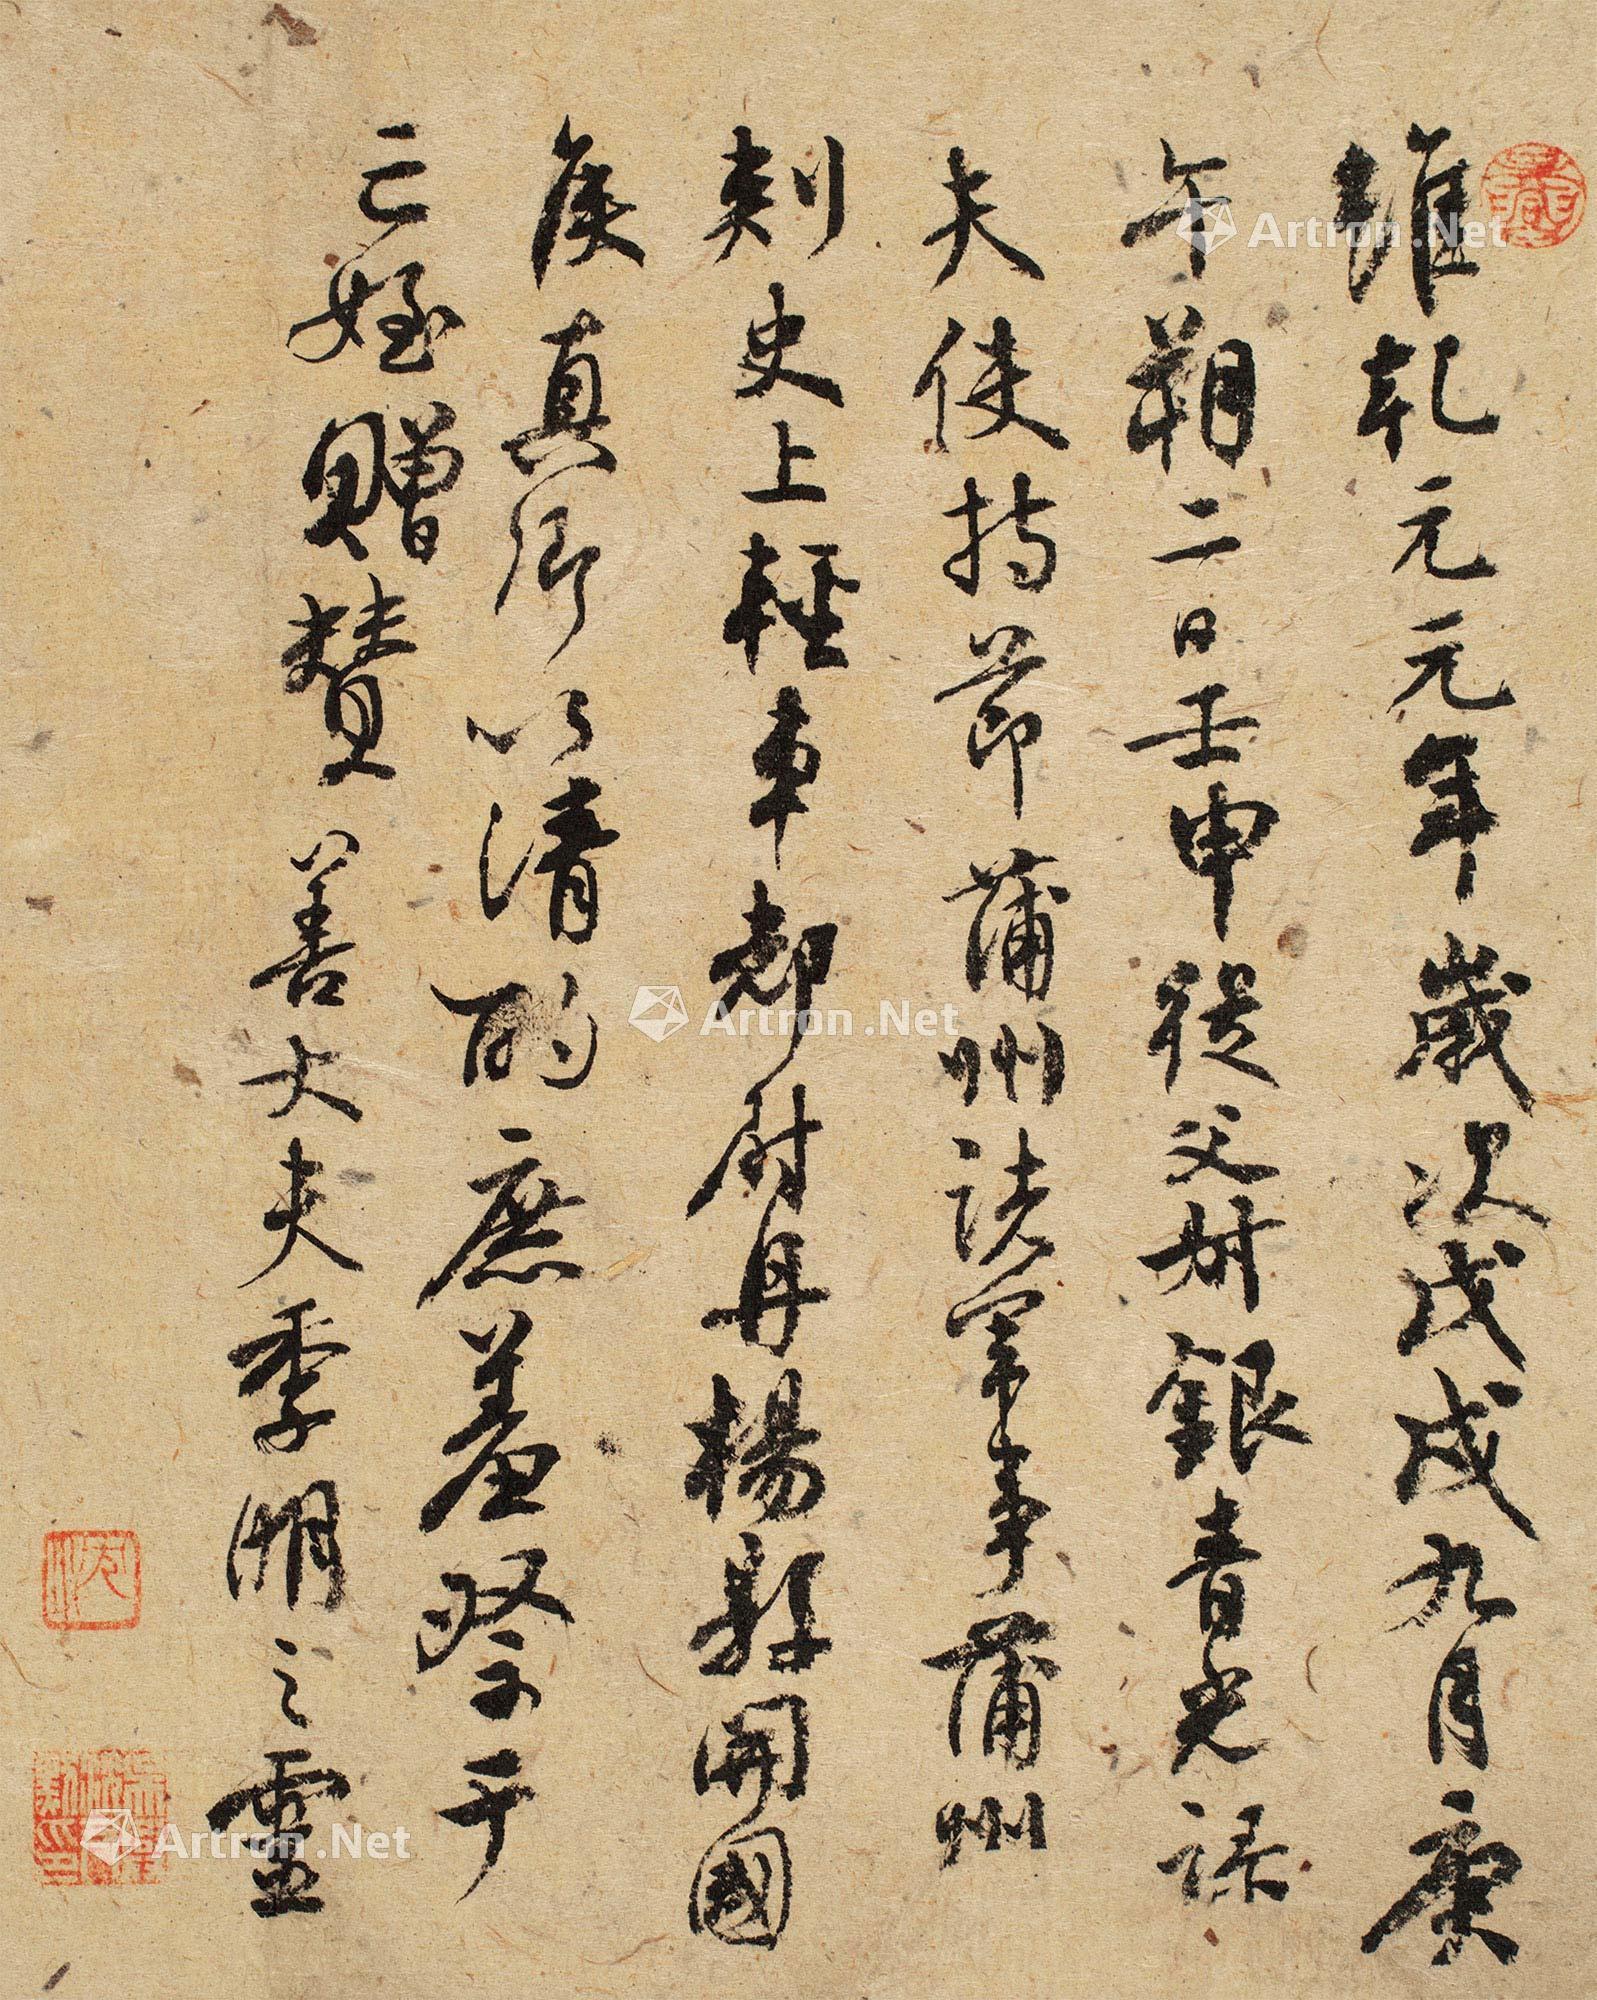 維乾元元年歲次戊戌九月庚
午朔二日壬申從父叔銀青光祿
夫使持節蒲州諸軍事蒲州
刺史上輕車都尉丹楊縣開國
侯真卿以清酌庶羞祭于
亡姪贈贊善大夫季明之靈
Artron.Net
Artron.Net
Artron.Net